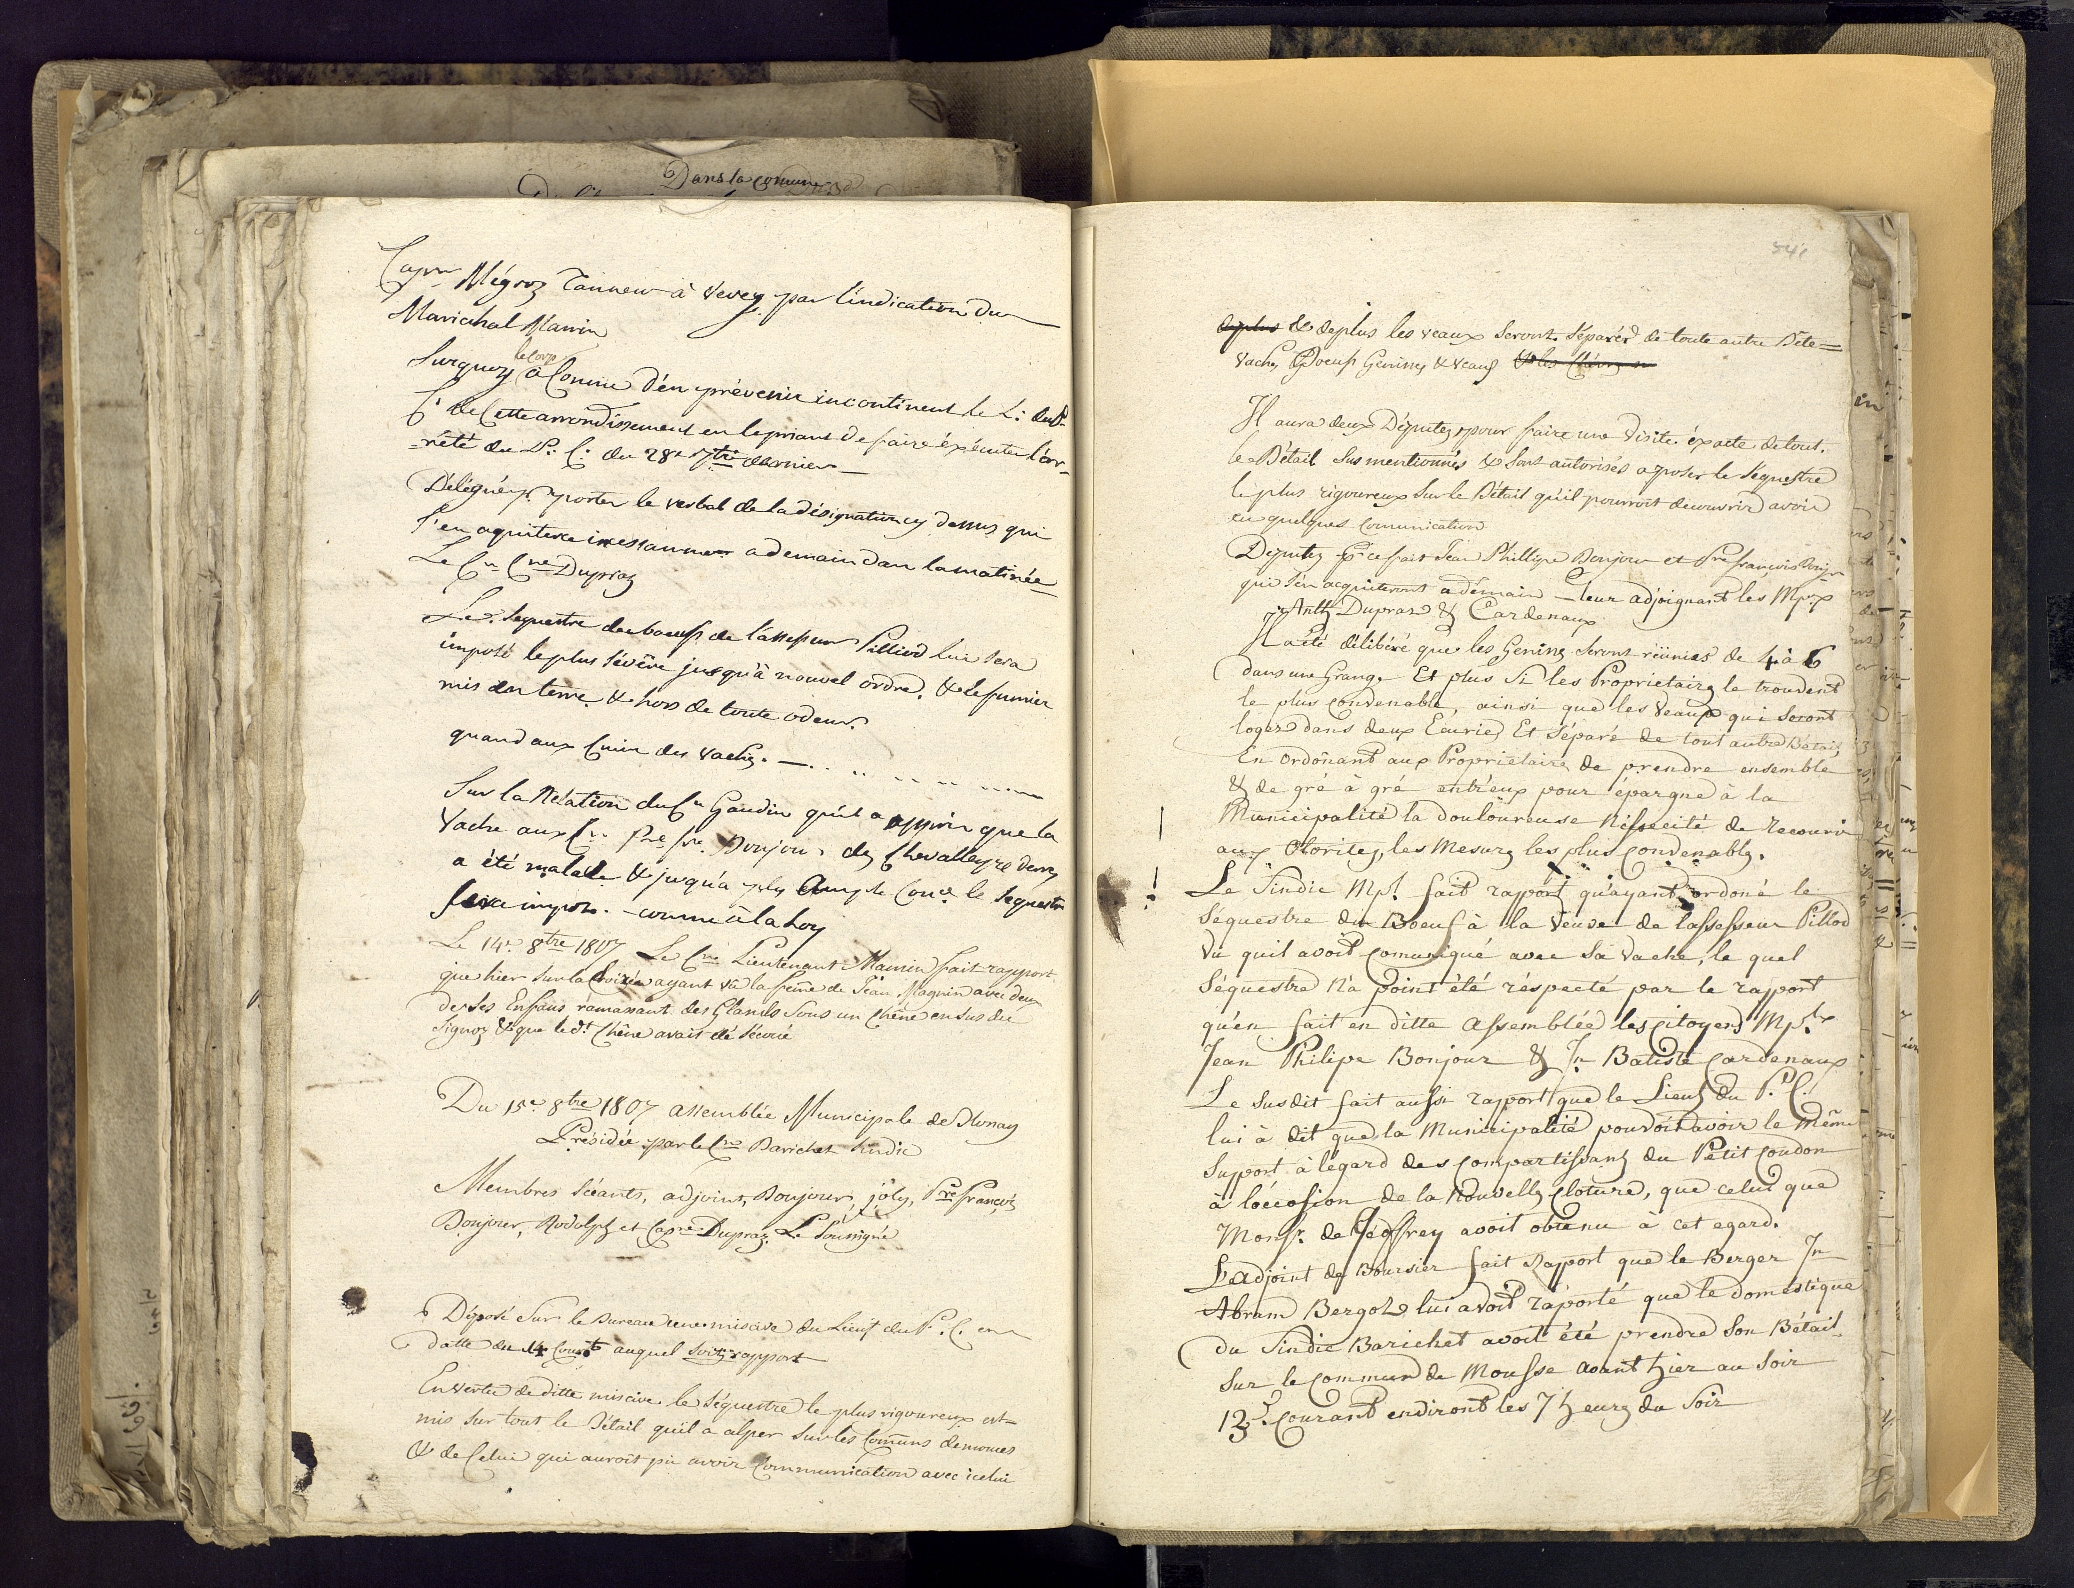 Dans la comune
Mégroz Tanneur à Vevey par l'indication du
Marichal Mamin
le Corp
Surquoy a Comme d'en prévenir incontinent le L: du P.
C: de Cette arrondissement en le priant de faire éxécuter l'ar-
-rêté du P: C: du 28e 7bre dernier
Délégué pr. porter le verbal de la désignation cy dessus qui
s'en aquitera incessamment a demain dan la matinée
Le Cn Cne Dupraz
Le Sequestre des boeufs de l'assesseur Pilliod lui sera
imposé le plus sévère jusqu'à nouvel ordre. & le fumier
mis en terre & hors de toute odeur.
quand aux Cuirs des vaches. —
Sur la Rélation du Cn Gaudin qu'il a appris que la
Vache aux Cn. Pre Fre. Bonjour des Chevalleyre
a été malade & jusqu'a plus Ample Conce. le Sequestre
sera impos. - comme à la Loy
Le 14e. 8tre 1807 Le Cne Lieutenant Mamin fait rapport
que hier sur la Croisée ayant vu la feme de Jean Magnin avec deux
de ses Enfans ramassant des Glands sous un Chêne en sus du
Signoz & que le dt. Chêne avait été sécoué
Du 15e 8tre 1807 assemblée Municipale de Blonay
Présidée par le Cne Barichet Sindic
Membres Séeants, adjoint, Bonjour, joly, Pre françois
Bonjour, Rodolph et Cape Dupraz. Le Soussigné
Déposé Sur le Bureau une miscive du Lieut du P. C. en
datte du 14 Courts auquel Soit rapport
En vertu de ditte miscive le Séquestre le plus rigoureux est
mis sur tout le Bétail qu'il a alper sur les Comuns
& de Celui qui auroit pu avoir Communication avec icelui
541
deplus & deplus les veaux seront Séparés de toute autre Bete=
Vaches Boeufs Genises & Veaux & les Chévres
Il aura deux Députez pour faire une Visite éxacte de tout.
le Bétail Sus mentionnés & sont autorisés a poser le Séquestre
le plus rigoureux Sur le Bétail qu'il pourroit decouvrir avoir
eu quelques Comunication
Députez pr ce fait Jean Phillipe Bonjour et Pre François Bonjr
qui s'en acquiteront a demain — leur adjoignant les Mpx
Anth Dupraz & Cardenaux
Il a été délibéré que les Genises seront réünies de 4 à 6
dans une Grange Et plus Si les Proprietaires le trouvent
le plus convenable, ainsi que les Veaux qui seront
loger dans deux Ecuries Et Séparé de tout autre Bétail,
En ordonant aux Proprietaires de prendre ensemble
& de gré à gré entr'eux pour épargné à la
Municipalité la douloureuse Néssecité de recourir
aux Otorités, les Mesures les plus convenables.
Le Sindic Mpl. fait rapport qu'ayant ordoné le
Séquestre du Boeuf à la Veuve de lassesseur Pillod
Vu quil avoit comuniqué avec Sa Vache, le quel
Séquestre n'a point été réspecté par le rapport
qu'en fait en ditte assemblée les citoyens Mpx
Jean Philipe Bonjour & Jn Batiste Cardenaux
Le susdit fait aussi rapport que le Lieut du P. C.
lui à dit que la Municipalité pouvoit avoir le même
Suport à l'égard des compartissants du Petit Coudon
à l'occosion de la Nouvelle cloture, que celui que
Monsr. de Jeoffrey avoit obtenu à cet egard.
L'adjoint de Boursier fait Rapport que le Berger Jn
Abram Bergoz lui avoit raporté que le domestique
du Sindic Barichet avoit été prendre Son Bétail
Sur le commun de Mousse avant hier au Soir
13e. courant endiront les 7 heures du Soir